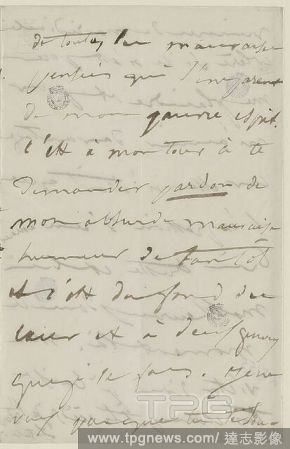 de toutes les mauvaises
pensées qui s'emparent
de mon pauvre esprit.
C'est à mon tour à te
demander pardon de
mon absurde mauvaise
humeur de tantôt
et c'est du fond du
cœur et à deux genoux
que je le fais.
TPG
www.tpgnews.com | 達志影像